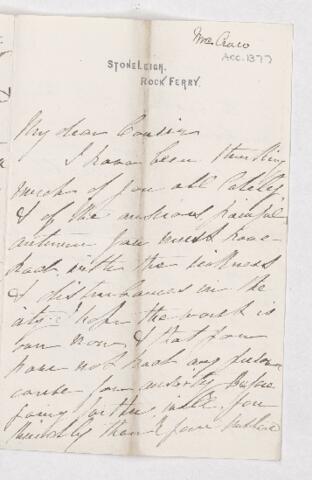 Mrs Craw
ACC.1377
STONELEIGH,
ROCK FERRY.
My dear Cousin
I have been thinking
much of you all lately
& of the anxious, painful
autumn you must have
had with the sickness
& disturbances in the
city. I hope the worst is
over now, & that you
have not had any
cause for anxiety. Before
going further, will you
kindly thank your